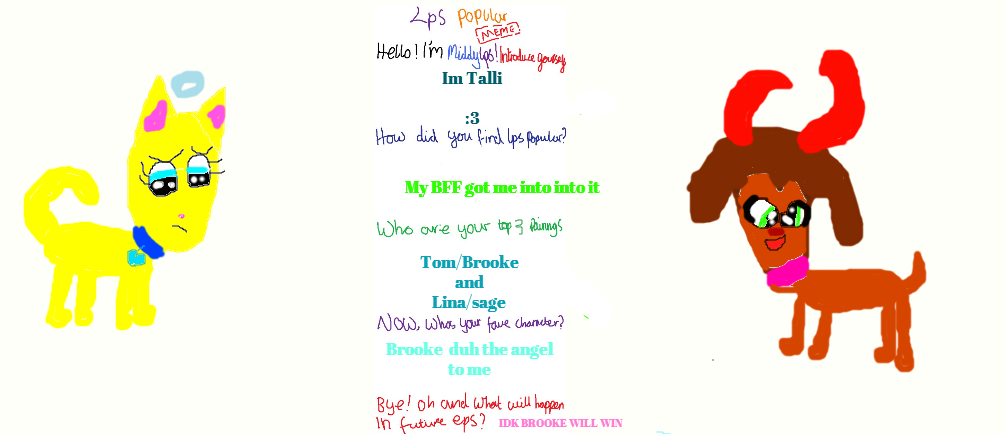 Lps Popular
MEME
Hello! I'm Middylps! Introduce yourself
Im Talli
:3
How did you find lps popular?
My BFF got me into into it
Who are your top 3 Pairings
Tom/Brooke
and
Lina/sage
NOW, Whos your fave character?
Brooke duh the angel
to me
Bye! Oh and what will happen
in future eps? IDK BROOKE WILL WIN